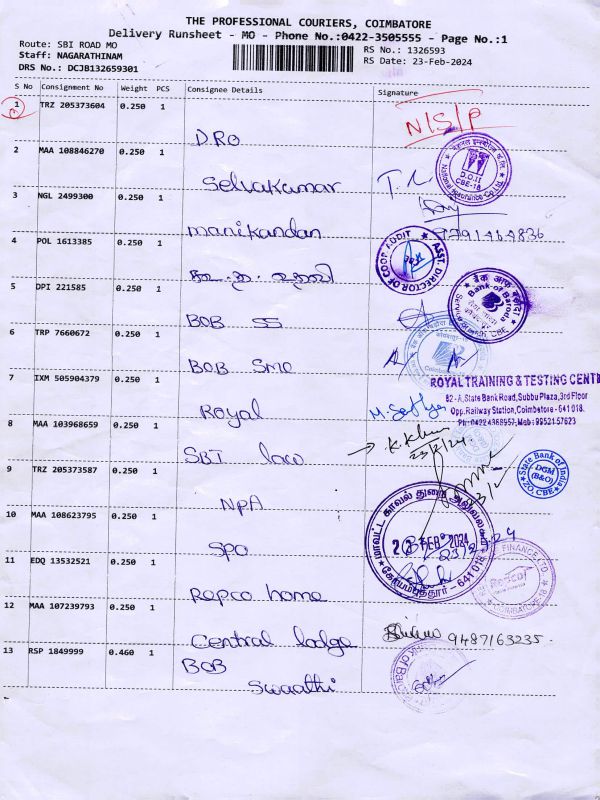 THE PROFESSIONAL COURIERS, COIMBATORE
Delivery Runsheet - MO - Phone No.:0422-3505555 - Page No.:1
Route: SBI ROAD MO
RS No.: 1326593
Staff: NAGARATHINAM
RS Date: 23-Feb-2024
DRS No.: DCJB132659301
S No Consignment No Weight PCS Consignee Details Signature
1 TRZ 205373604 0.250 1
D.RO N/S/P
2 MAA 108846270 0.250 1
Selvakumar
3 NGL 2499300 0.250 1
manikandan
4 POL 1613385 0.250 1
ASST. DIRECTOR OF COOP AUDIT
5 DPI 221585 0.250 1
BOB SS
Bank of Baroda
6 TRP 7660672 0.250 1
BOB Sme
7 IXM 505904379 0.250 1
Royal
ROYAL TRAINING & TESTING CENT
82-A, State Bank Road, Subbu Plaza, 3rd Floor
Opp. Railway Station, Coimbatore - 641 018.
8 MAA 103968659 0.250 1
SBI law
23/2/24
State Bank of India
DGM
(B&O)
ZO, CBE
9 TRZ 205373587 0.250 1
NPA
10 MAA 108623795 0.250 1
SPO
23/2/24
11 EDQ 13532521 0.250 1
Repco home
12 MAA 107239793 0.250 1
Central lodge 9487163235
13 RSP 1849999 0.460 1
BOB
Swaathi